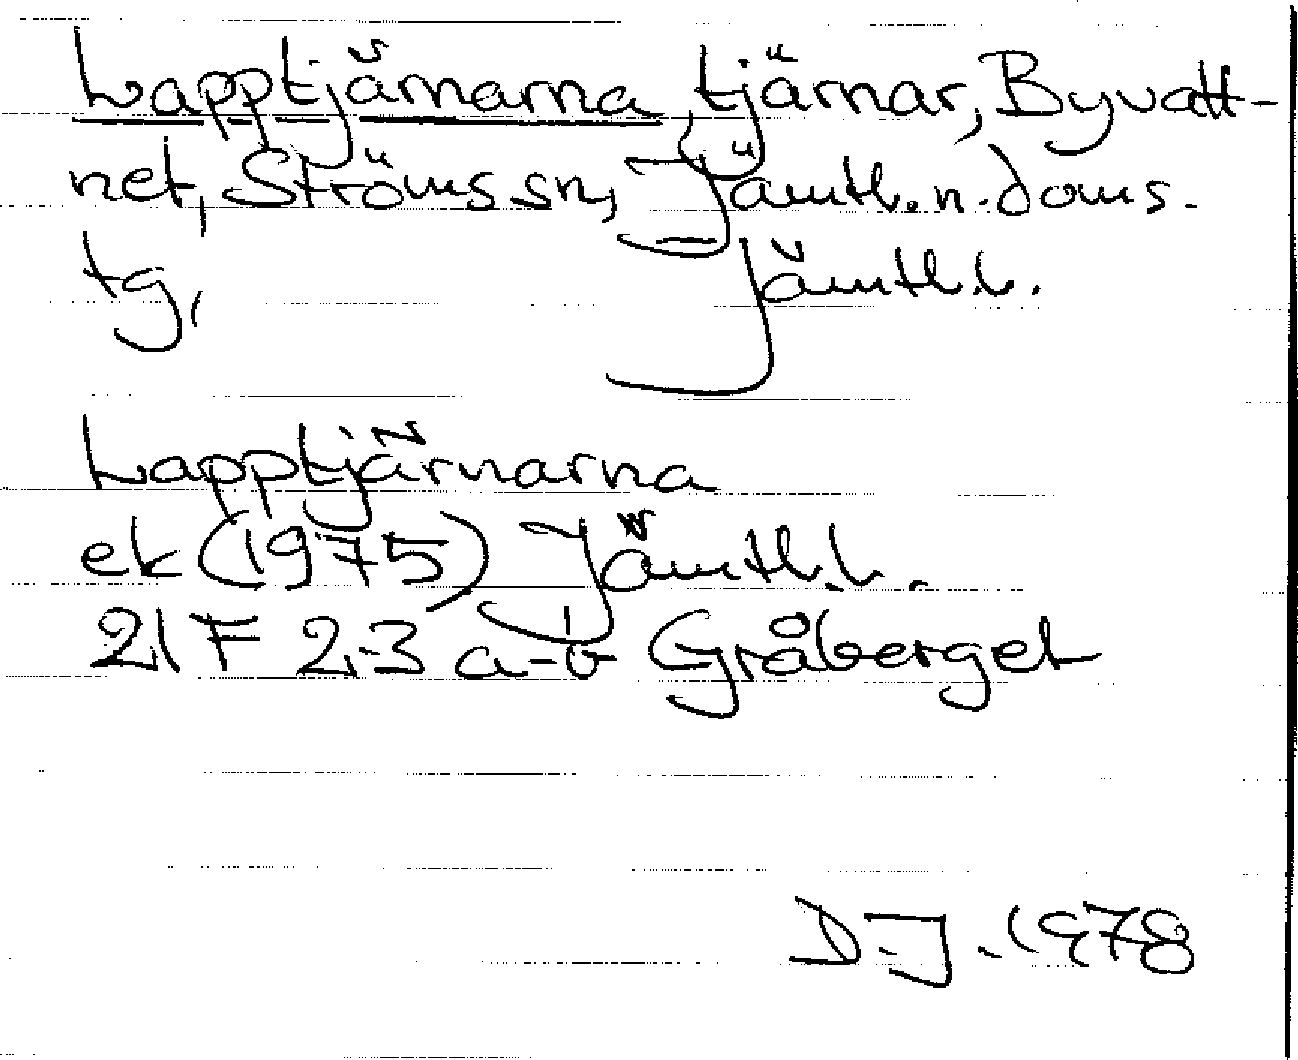 Lapptjärnarna, tjärnar, Byvatt-
net, Ströms sn, Jämtl. n. doms.
tg, Jämtl.l.
Lapptjärnarna
ek (1975) Jämtl.l.
21F 2-3 a-b Gråberget
D.J. 1978